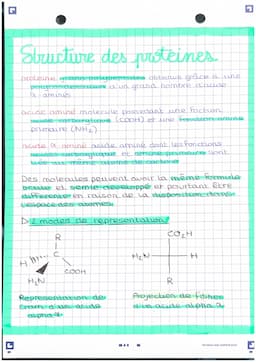 Structure des protéines
protéine grand polypeptides obtenue grâce à une
d'un grand nombre d'acide
α-aminés
acide aminé molécule possédant une fonction
acide carboxylique (COOH) et une fonction amine
primaire (NH₂)
acide α aminé acide aminé dont les fonctions
acide carboxylique et amine primaire sont
liés au même atome de carbone
Des molécules peuvent avoir la même formule
brute et semie développée et pourtant être
différente en raison de la disposition dans
l'espace des atomes
D 2 modes de représentation
R
C
H
H₂N
COOH
CO₂H
H₂N
H
R
Représentation de
Cram d'un acide
alpha α
Projection de Fisher
d'un acide alpha α